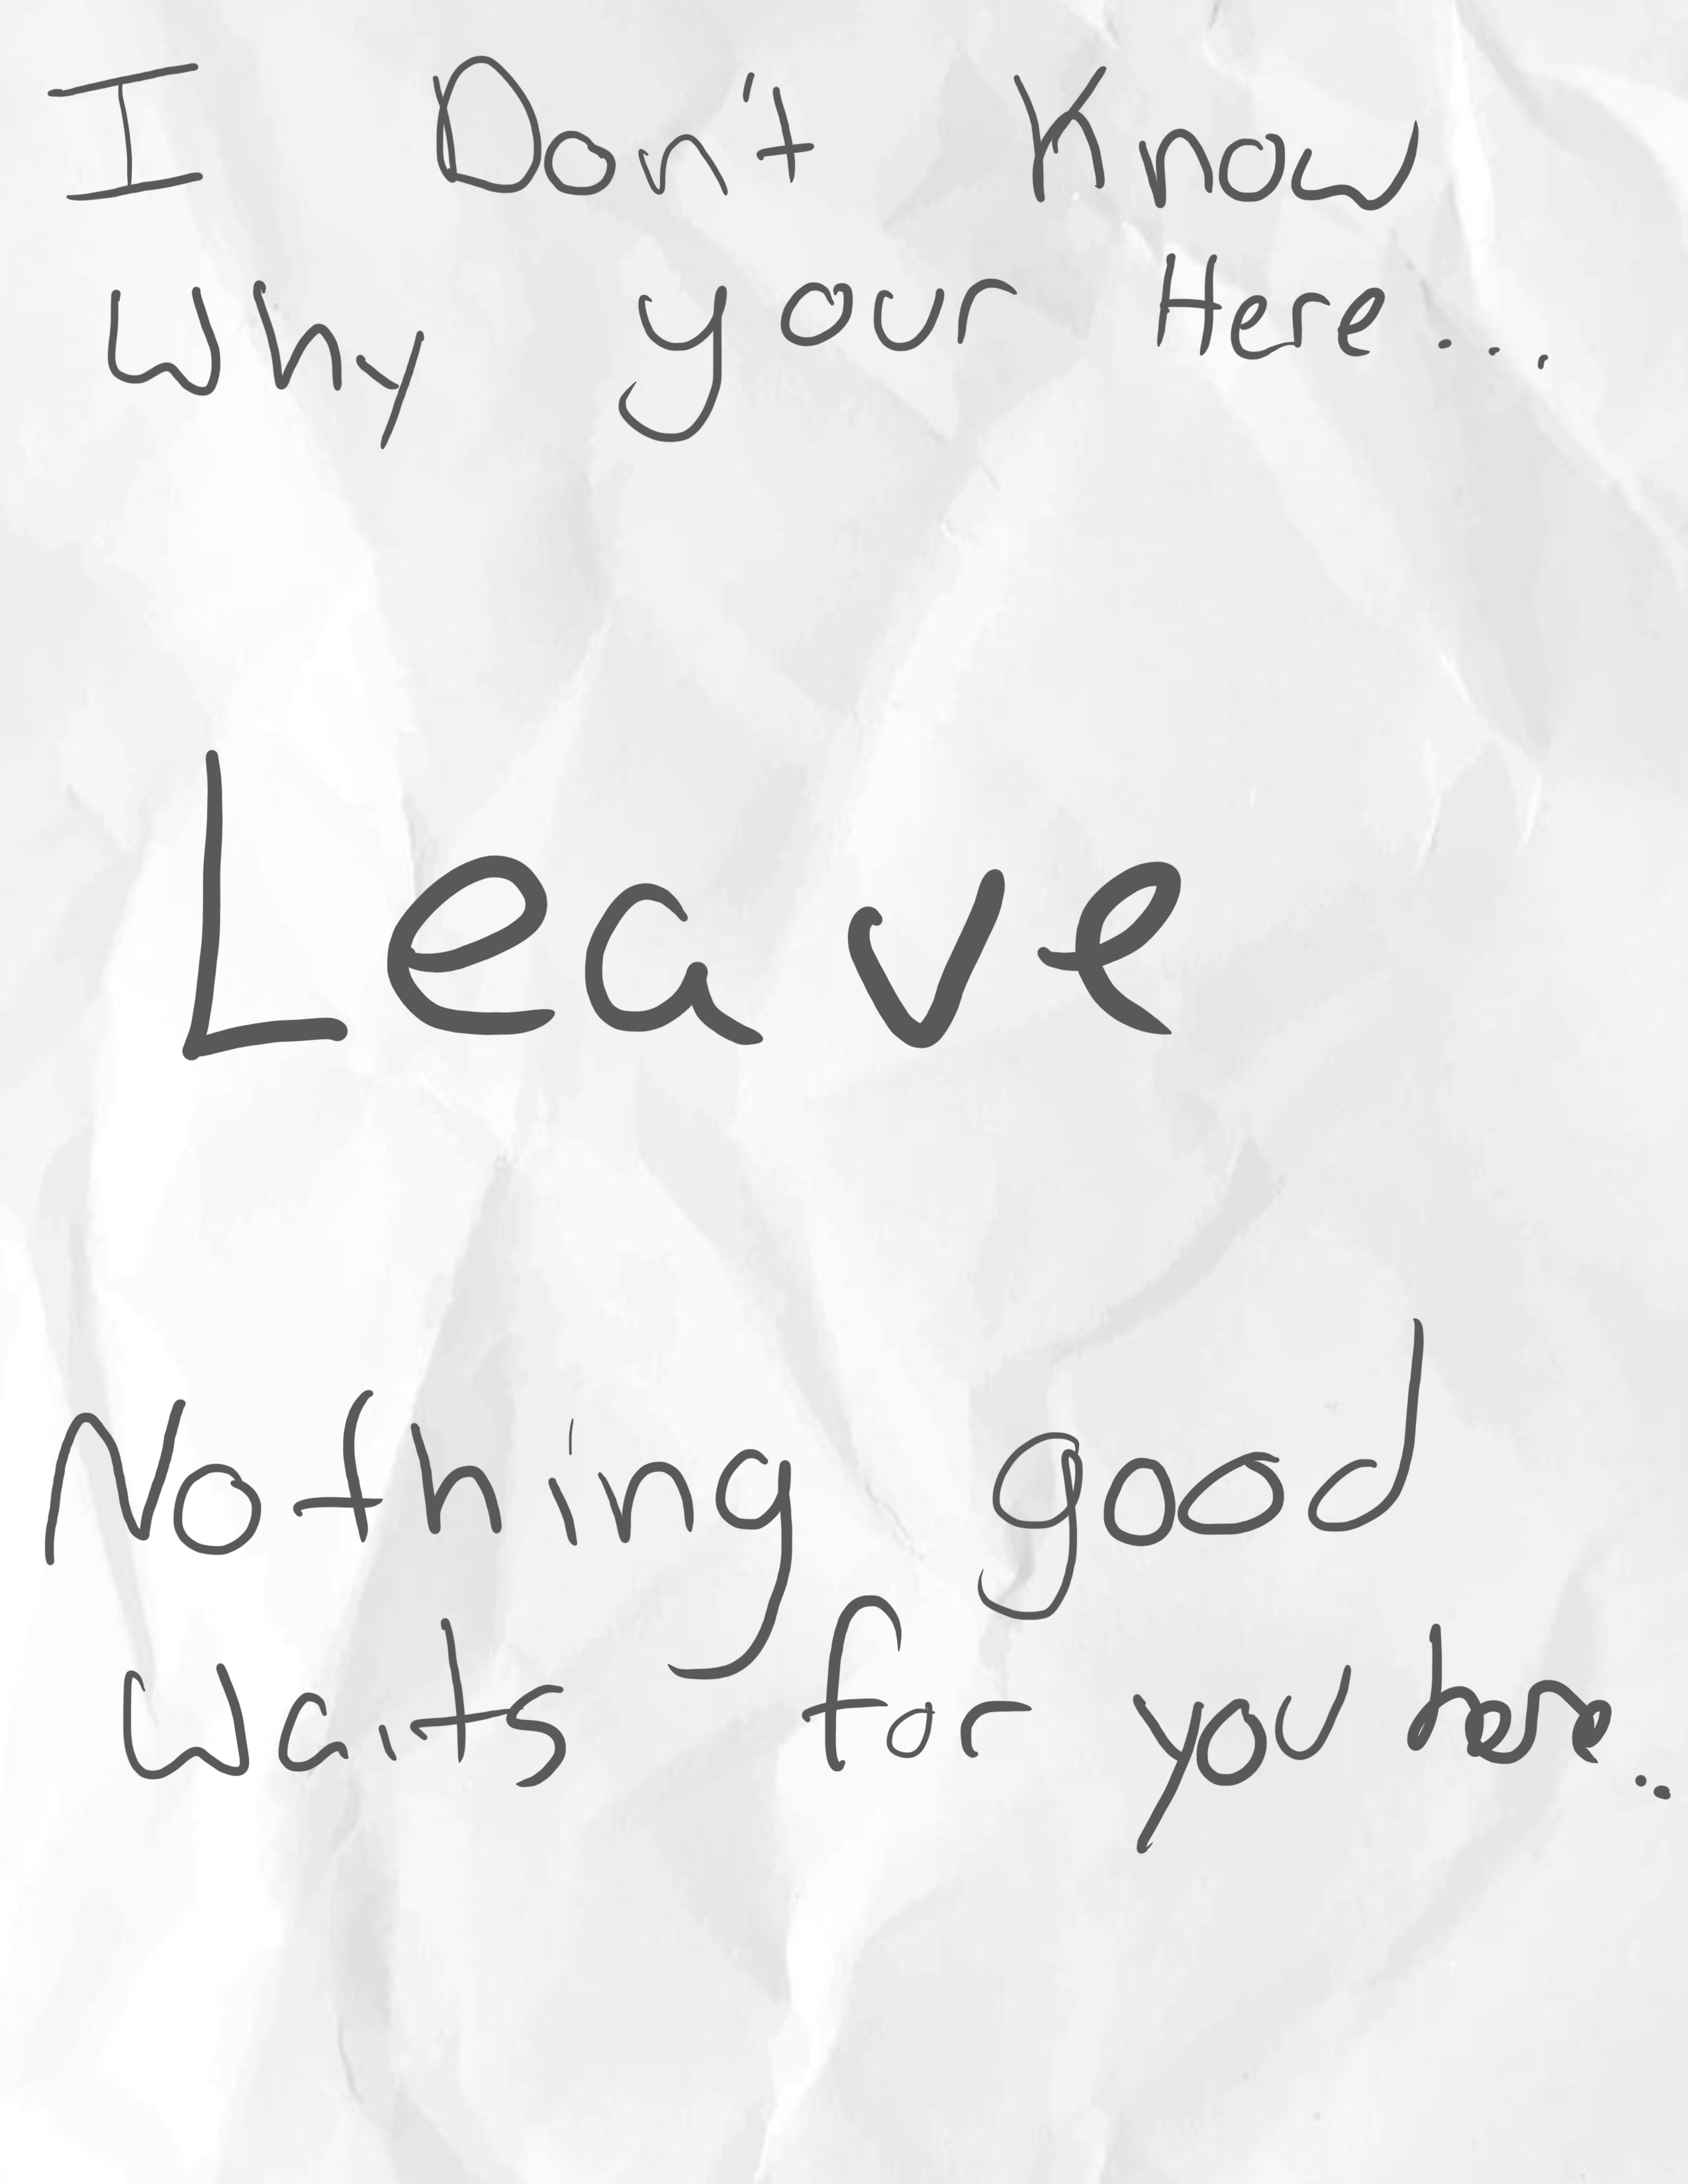 I Don't Know
Why your Here...
Leave
Nothing good
Waits for you here..